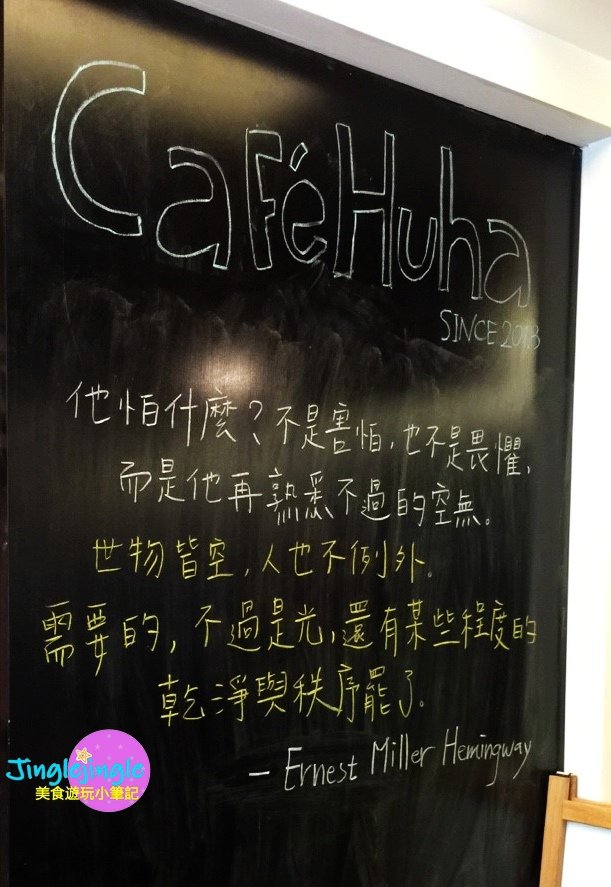 Café Huha
SINCE 2013
他怕什麼？不是害怕，也不是畏懼，
而是他再熟悉不過的空無。
世物皆空，人也不例外。
需要的，不過是光，還有某些程度的
乾淨與秩序罷了。
— Ernest Miller Hemingway
Jinglejingle
美食遊玩小筆記